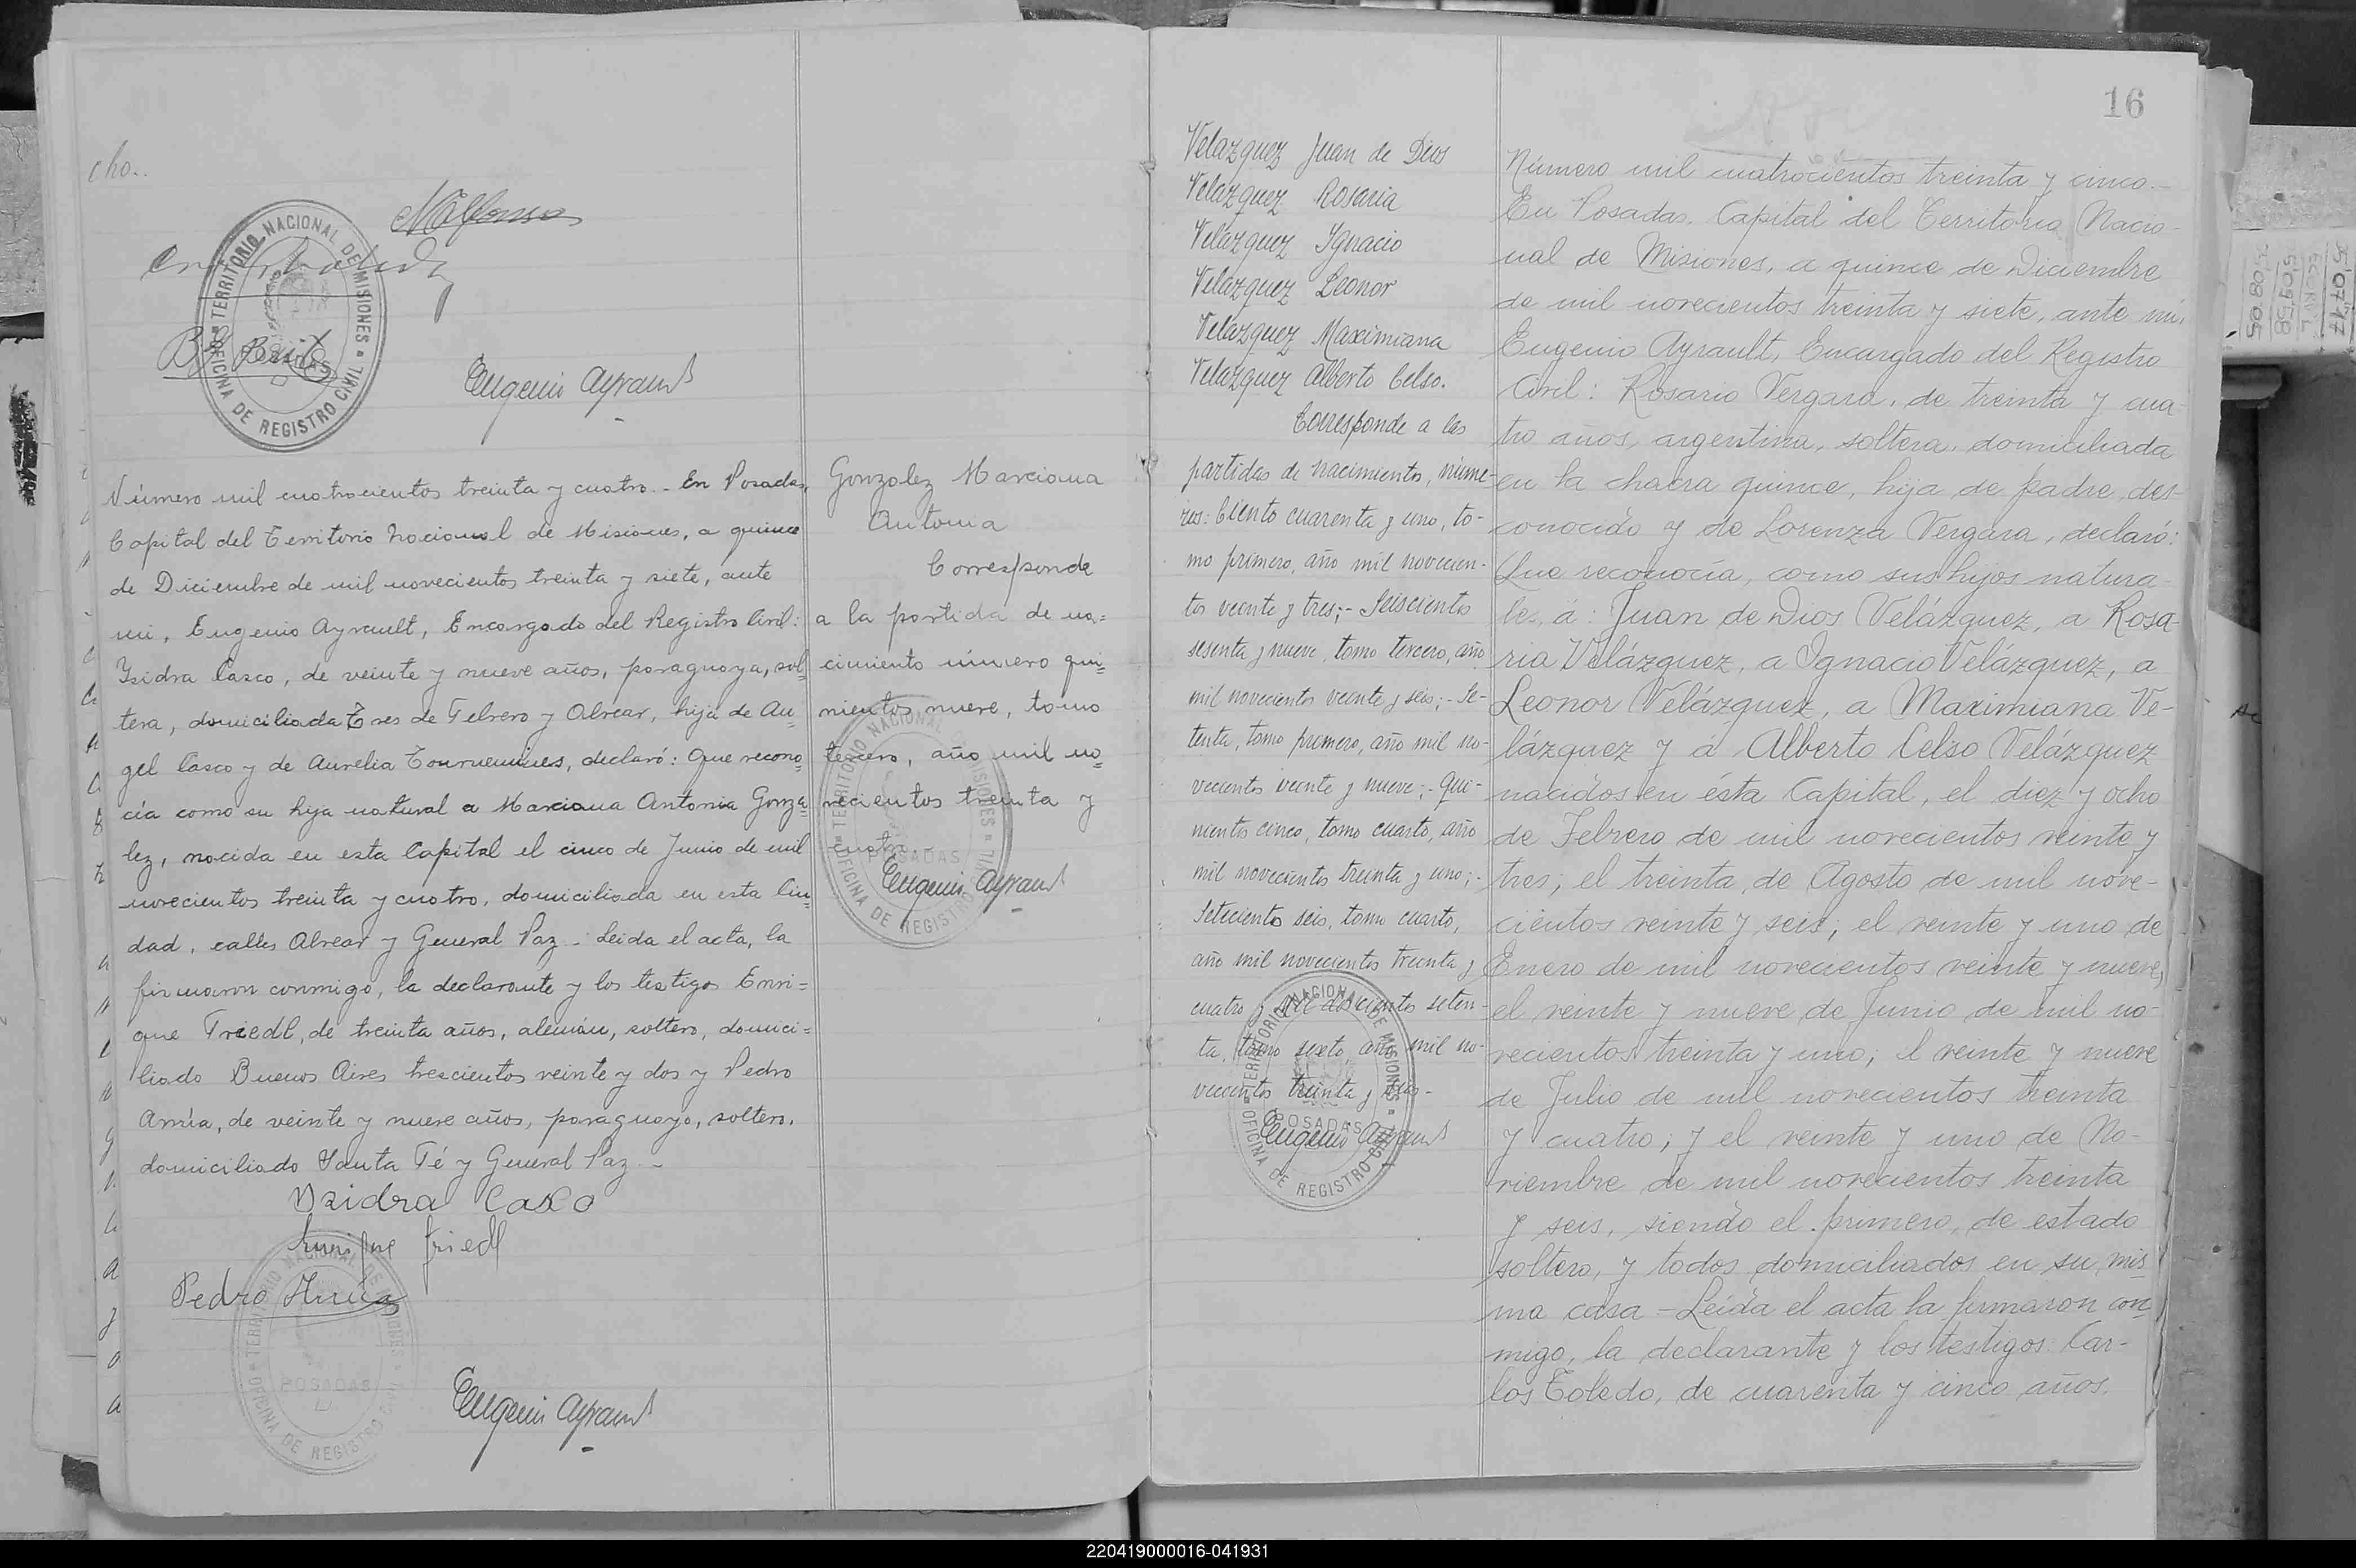 cho..
NAlfonso
Eugenio Ayrault
TERRITORIO NACIONAL DE MISIONES
OFICINA DE REGISTRO CIVIL
Número mil cuatrocientos treinta y cuatro.- En Posadas,
Capital del Territorio Nacional de Misiones, a quince
de Diciembre de mil novecientos treinta y siete, ante
mi, Eugenio Ayrault, Encargado del Registro Civil:
Ysidra Casco, de veinte y nueve años, paraguaya, sol-
tera, domiciliada Tres de Febrero y Alvear, hija de An-
gel Casco y de Aurelia, declaró: Que recono-
cía como su hija natural a Marciana Antonia Gonza-
lez, nacida en esta Capital el cinco de Junio de mil
novecientos treinta y cuatro, domiciliada en esta Ciu-
dad, calles Alvear y General Paz.- Leida el acta, la
firmaron conmigo, la declarante y los testigos Enri=
que Friedl, de treinta años, alemán, soltero, domici=
liado Buenos Aires trescientos veinte y dos y Pedro
de veinte y nueve años, paraguayo, soltero,
domiciliado Santa Fé y General Paz.-
Ysidra Casco
Enrique Friedl
Pedro
TERRITORIO NACIONAL DE MISIONES
POSADAS
OFICINA DE REGISTRO CIVIL
Eugenio Ayrault
Gonzalez Marciana
Antonia
Corresponde
a la partida de na=
cimiento número qui=
nientos nueve, tomo
tercero, año mil no=
vecientos treinta y
cuatro.-
Eugenio Ayrault
TERRITORIO NACIONAL DE MISIONES
POSADAS
OFICINA DE REGISTRO CIVIL
16
Velazquez Juan de Dios
Velazquez Rosaria
Velazquez Ignacio
Velazquez Leonor
Velazquez Maximiana
Velazquez Alberto Celso.
Corresponde a las
partidas de nacimientos, núme-
ros: Ciento cuarenta y uno, to-
mo primero, año mil novecien-
tos veinte y tres;- Seiscientos
sesenta y nueve, tomo tercero, año
mil novecientos veinte y seis;- Se-
tenta, tomo primero, año mil no-
vecientos veinte y nueve;- Qui-
nientos cinco, tomo cuarto, año
mil novecientos treinta y uno;-
Setecientos seis, tomo cuarto,
año mil novecientos treinta y
cuatro y mil doscientos seten-
ta, tomo sexto, año mil no-
vecientos treinta y seis.-
Eugenio Ayrault
TERRITORIO NACIONAL DE MISIONES
POSADAS
OFICINA DE REGISTRO CIVIL
Número mil cuatrocientos treinta y cinco.-
En Posadas, Capital del Territorio Nacio-
nal de Misiones, a quince de Diciembre
de mil novecientos treinta y siete, ante mi,
Eugenio Ayrault, Encargado del Registro
Civil: Rosario Vergara, de treinta y cua-
tro años, argentina, soltera, domiciliada
en la chacra quince, hija de padre des-
conocido y de Lorenza Vergara, declaró:
Que reconocía, como sus hijos natura-
les, á: Juan de Dios Velázquez, a Rosa-
ria Velázquez, a Ignacio Velázquez, a
Leonor Velázquez, a Maximiana Ve-
lázquez y á Alberto Celso Velázquez
nacidos en ésta Capital, el diez y ocho
de Febrero de mil novecientos veinte y
tres; el treinta de Agosto de mil nove-
cientos veinte y seis; el veinte y uno de
Enero de mil novecientos veinte y nueve;
el veinte y nueve de Junio de mil no-
vecientos treinta y uno; el veinte y nueve
de Julio de mil novecientos treinta
y cuatro; y el veinte y uno de No-
viembre de mil novecientos treinta
y seis, siendo el primero, de estado
soltero, y todos domiciliados en su mis-
ma casa - Leída el acta la firmaron con-
migo, la declarante y los testigos: Car-
los Toledo, de cuarenta y cinco años,
220419000016-041931